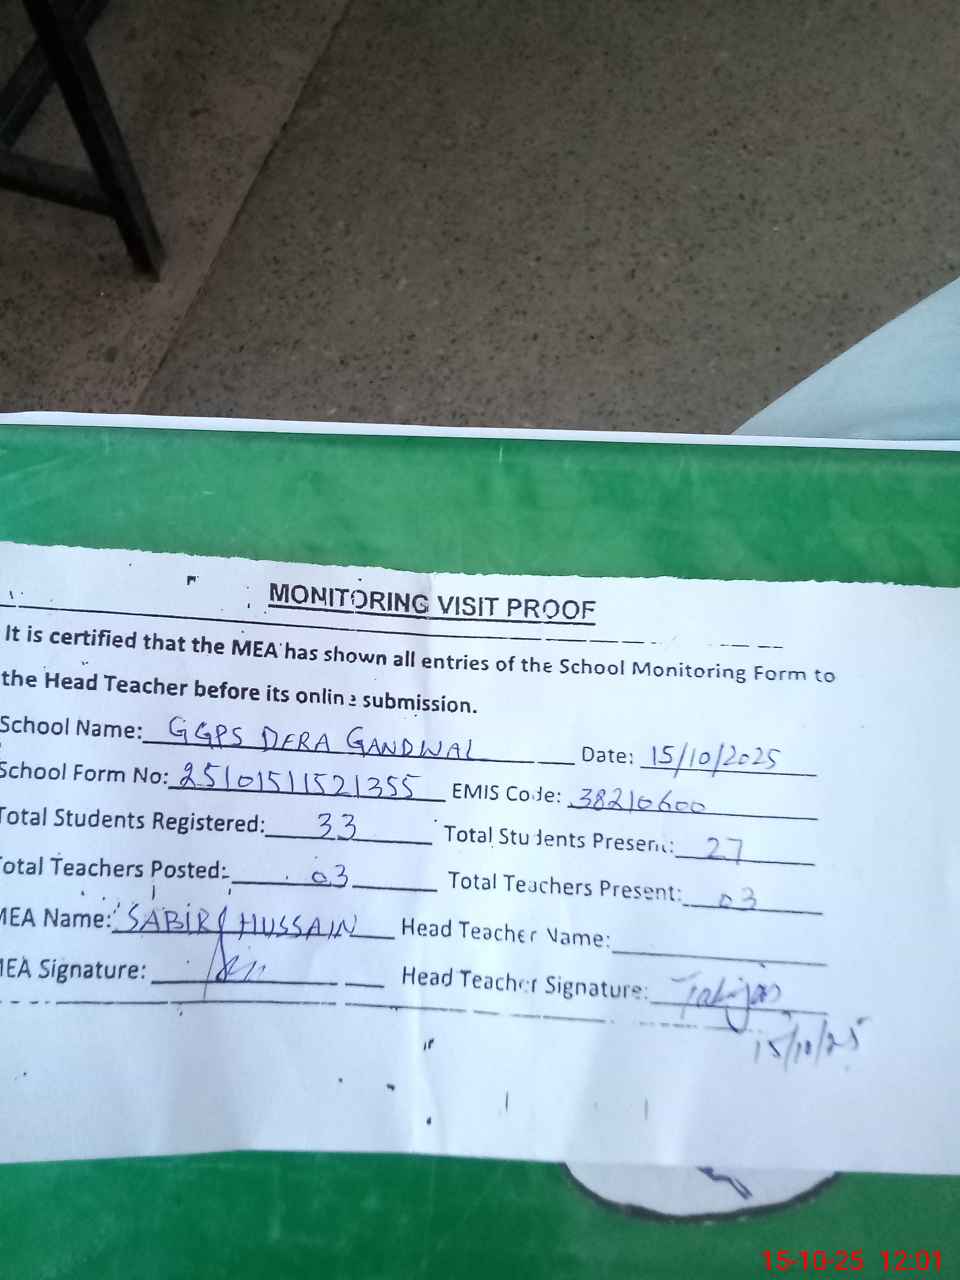 MONITORING VISIT PROOF
It is certified that the MEA has shown all entries of the School Monitoring Form to
the Head Teacher before its online submission.
School Name: GGPS DERA GANDWAL Date: 15/10/2025
School Form No: 25101511521355 EMIS Code: 38210600
Total Students Registered: 33 Total Students Present: 27
Total Teachers Posted: 03 Total Teachers Present: 03
MEA Name: SABIR HUSSAIN Head Teacher Name:
MEA Signature: Head Teacher Signature:
15/10/25
15-10-25 12:01